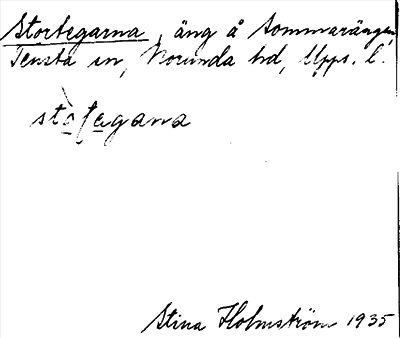 Stortegarna, äng å Sommarängen,
Tensta sn, Norunda hd, Upps. l.
stò̱ta̱gana
Stina Holmström 1935